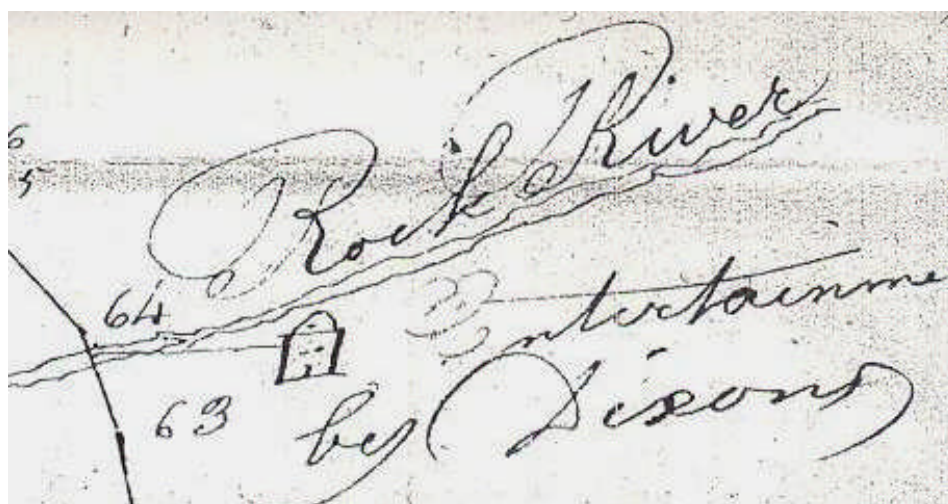 Rock River
6
5
64
Entertainme
63
by Dixons